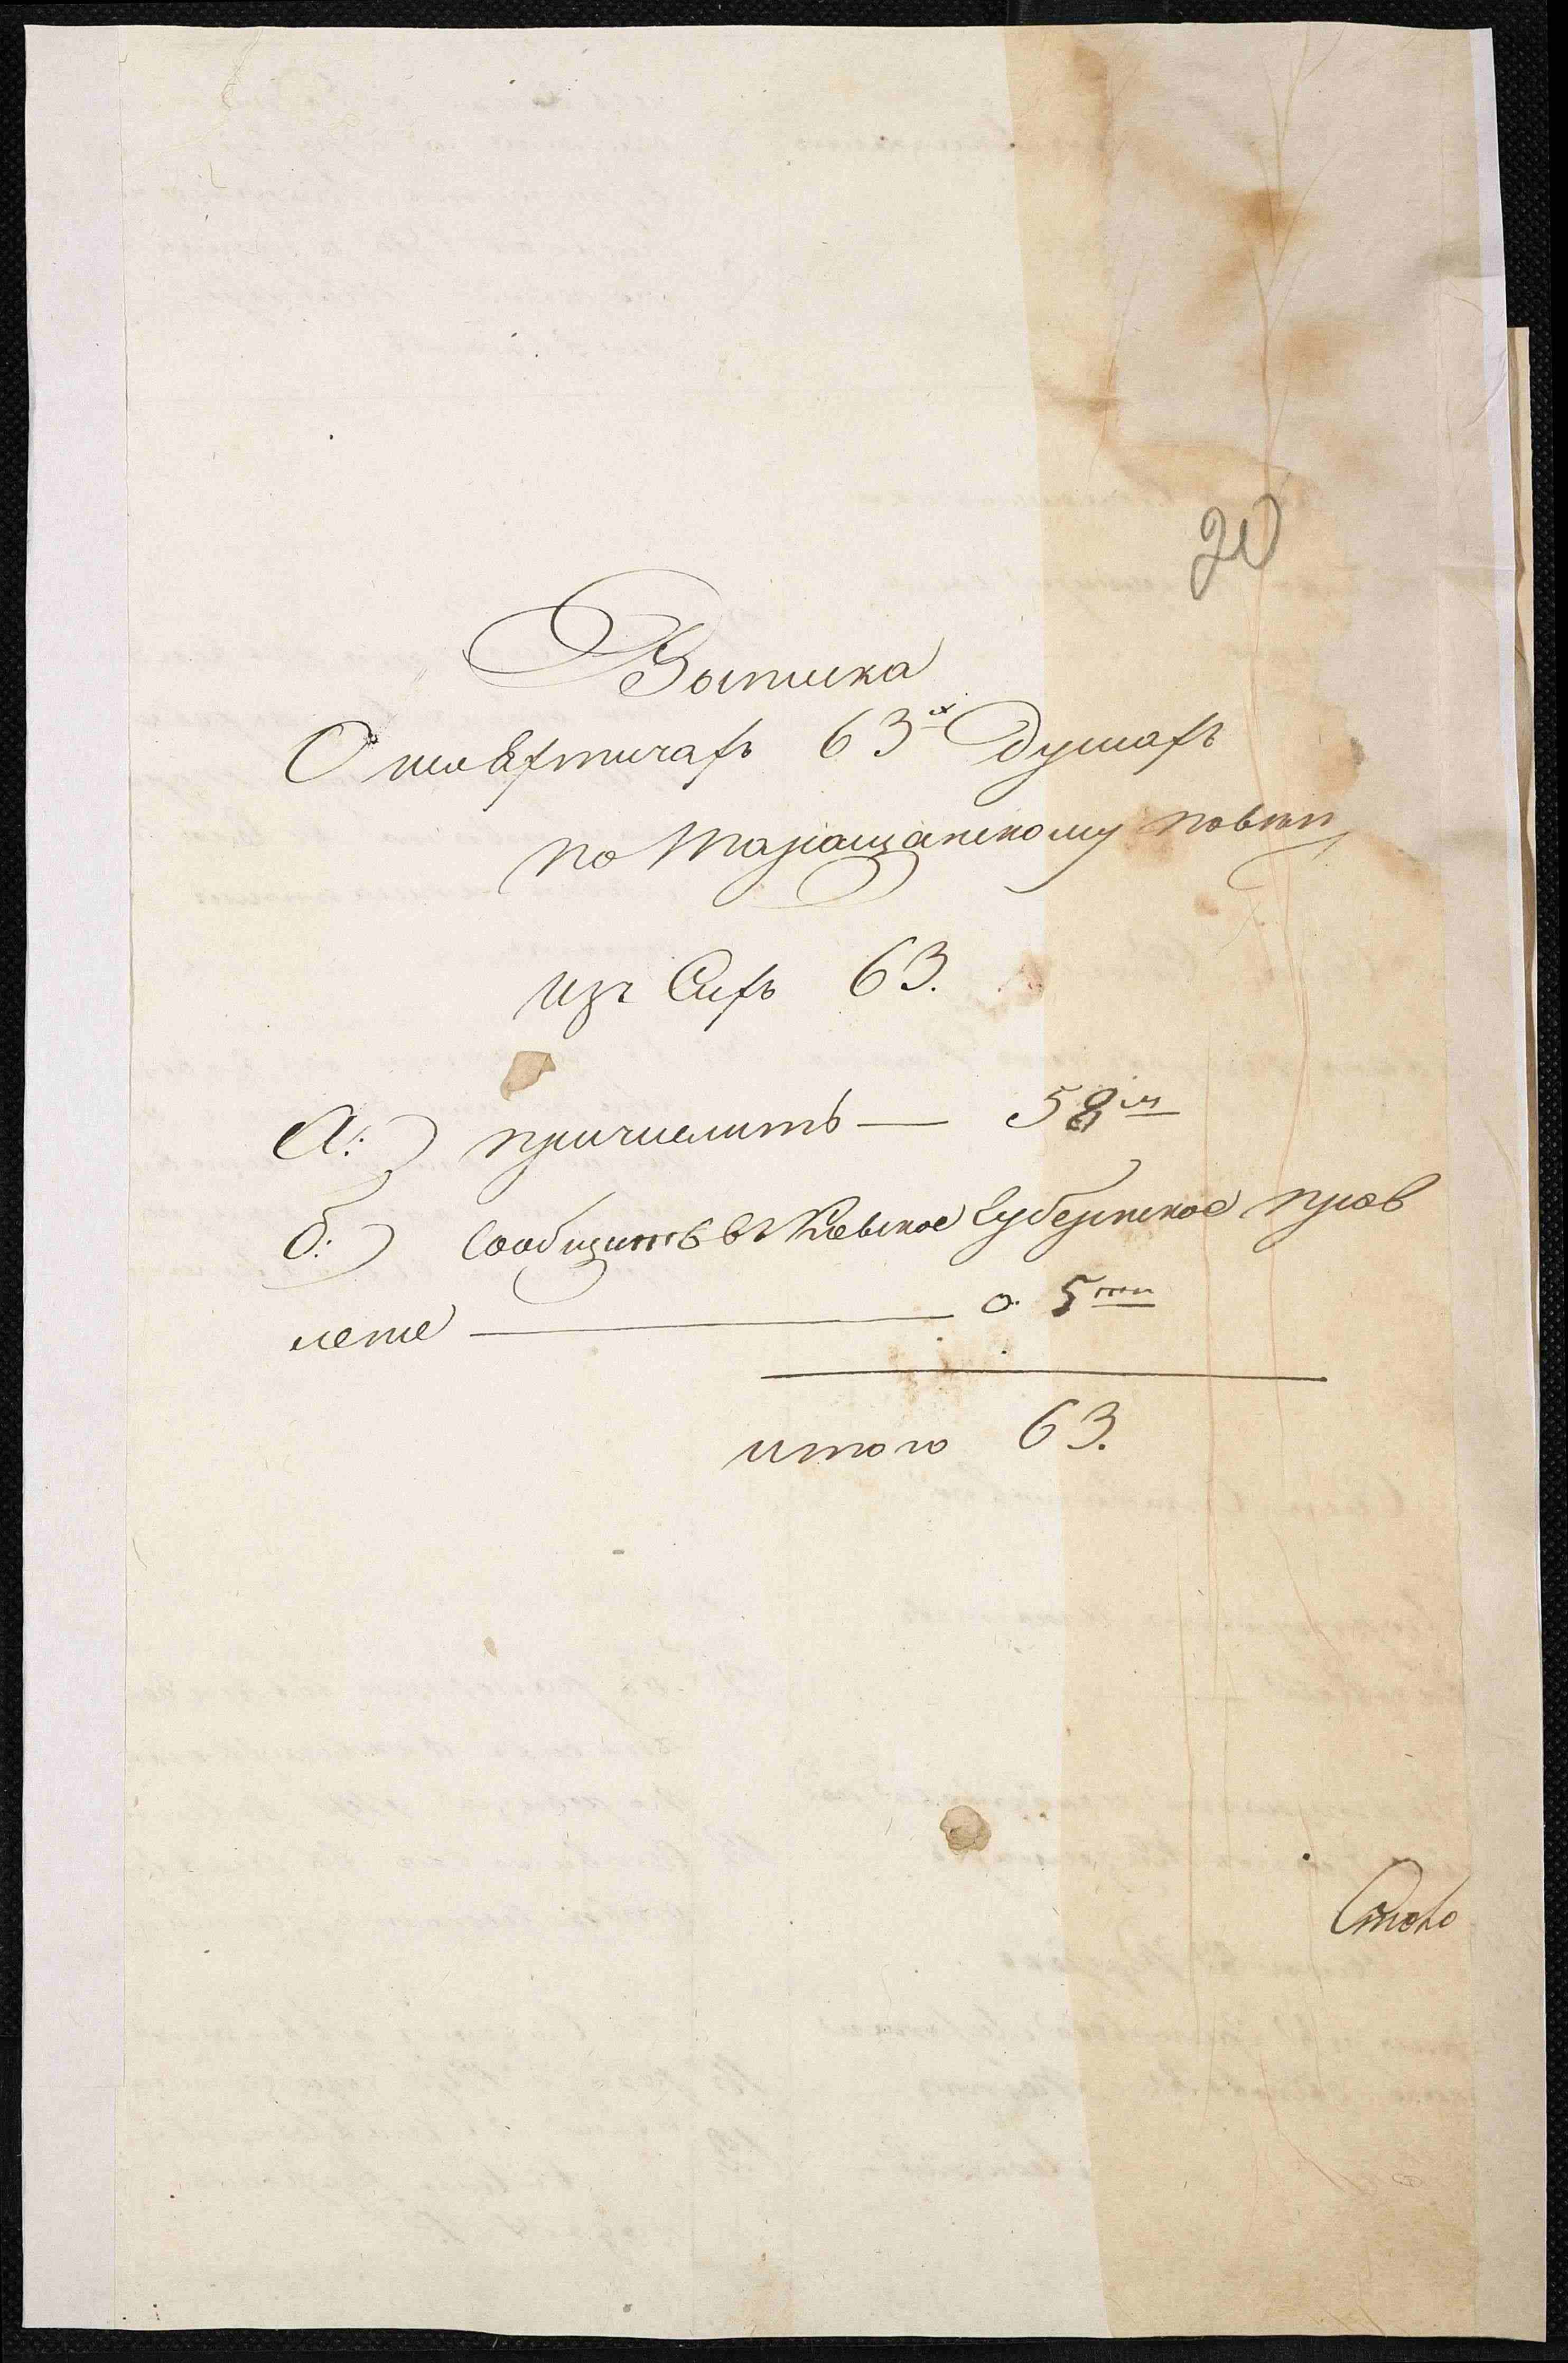 20
Выписка
О шляхтичахъ 63х душахъ
по Таращанскому повѣту
изъ Сихъ 63.
А:) причислить — 58мь
б:) Сообщить въ Киевское Губернское прав
ление — о 5ти
итого 63.
Столо